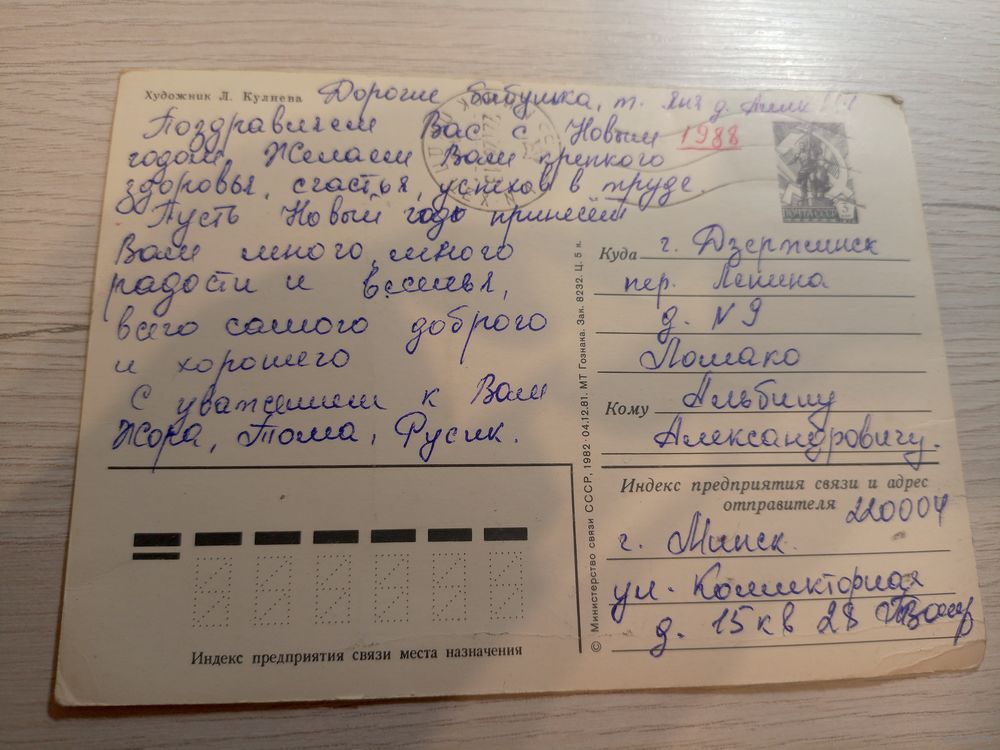 Художник Л. Кулиева
Дорогие бабушка, т. Яня д.
Поздравляем Вас с Новым 1988
годом Желаем Вам крепкого
здоровья, счастья, успехов в труде.
Пусть Новый год принесёт
Вам много, много
радости и веселья,
всего самого доброго
и хорошего
С уважением к Вам
Жора, Тома, Русик.
ПОЧТА СССР 3
Куда г. Дзержинск
пер. Ленина
д. №9
Ломако
Кому Альбину
Александровичу.
Индекс предприятия связи и адрес
отправителя 220004
г. Минск.
ул. Коллекторная
д. 15 кв 28
© Министерство связи СССР, 1982. 04.12.81. МТ Гознака. Зак. 8232. Ц. 5 к.
Индекс предприятия связи места назначения